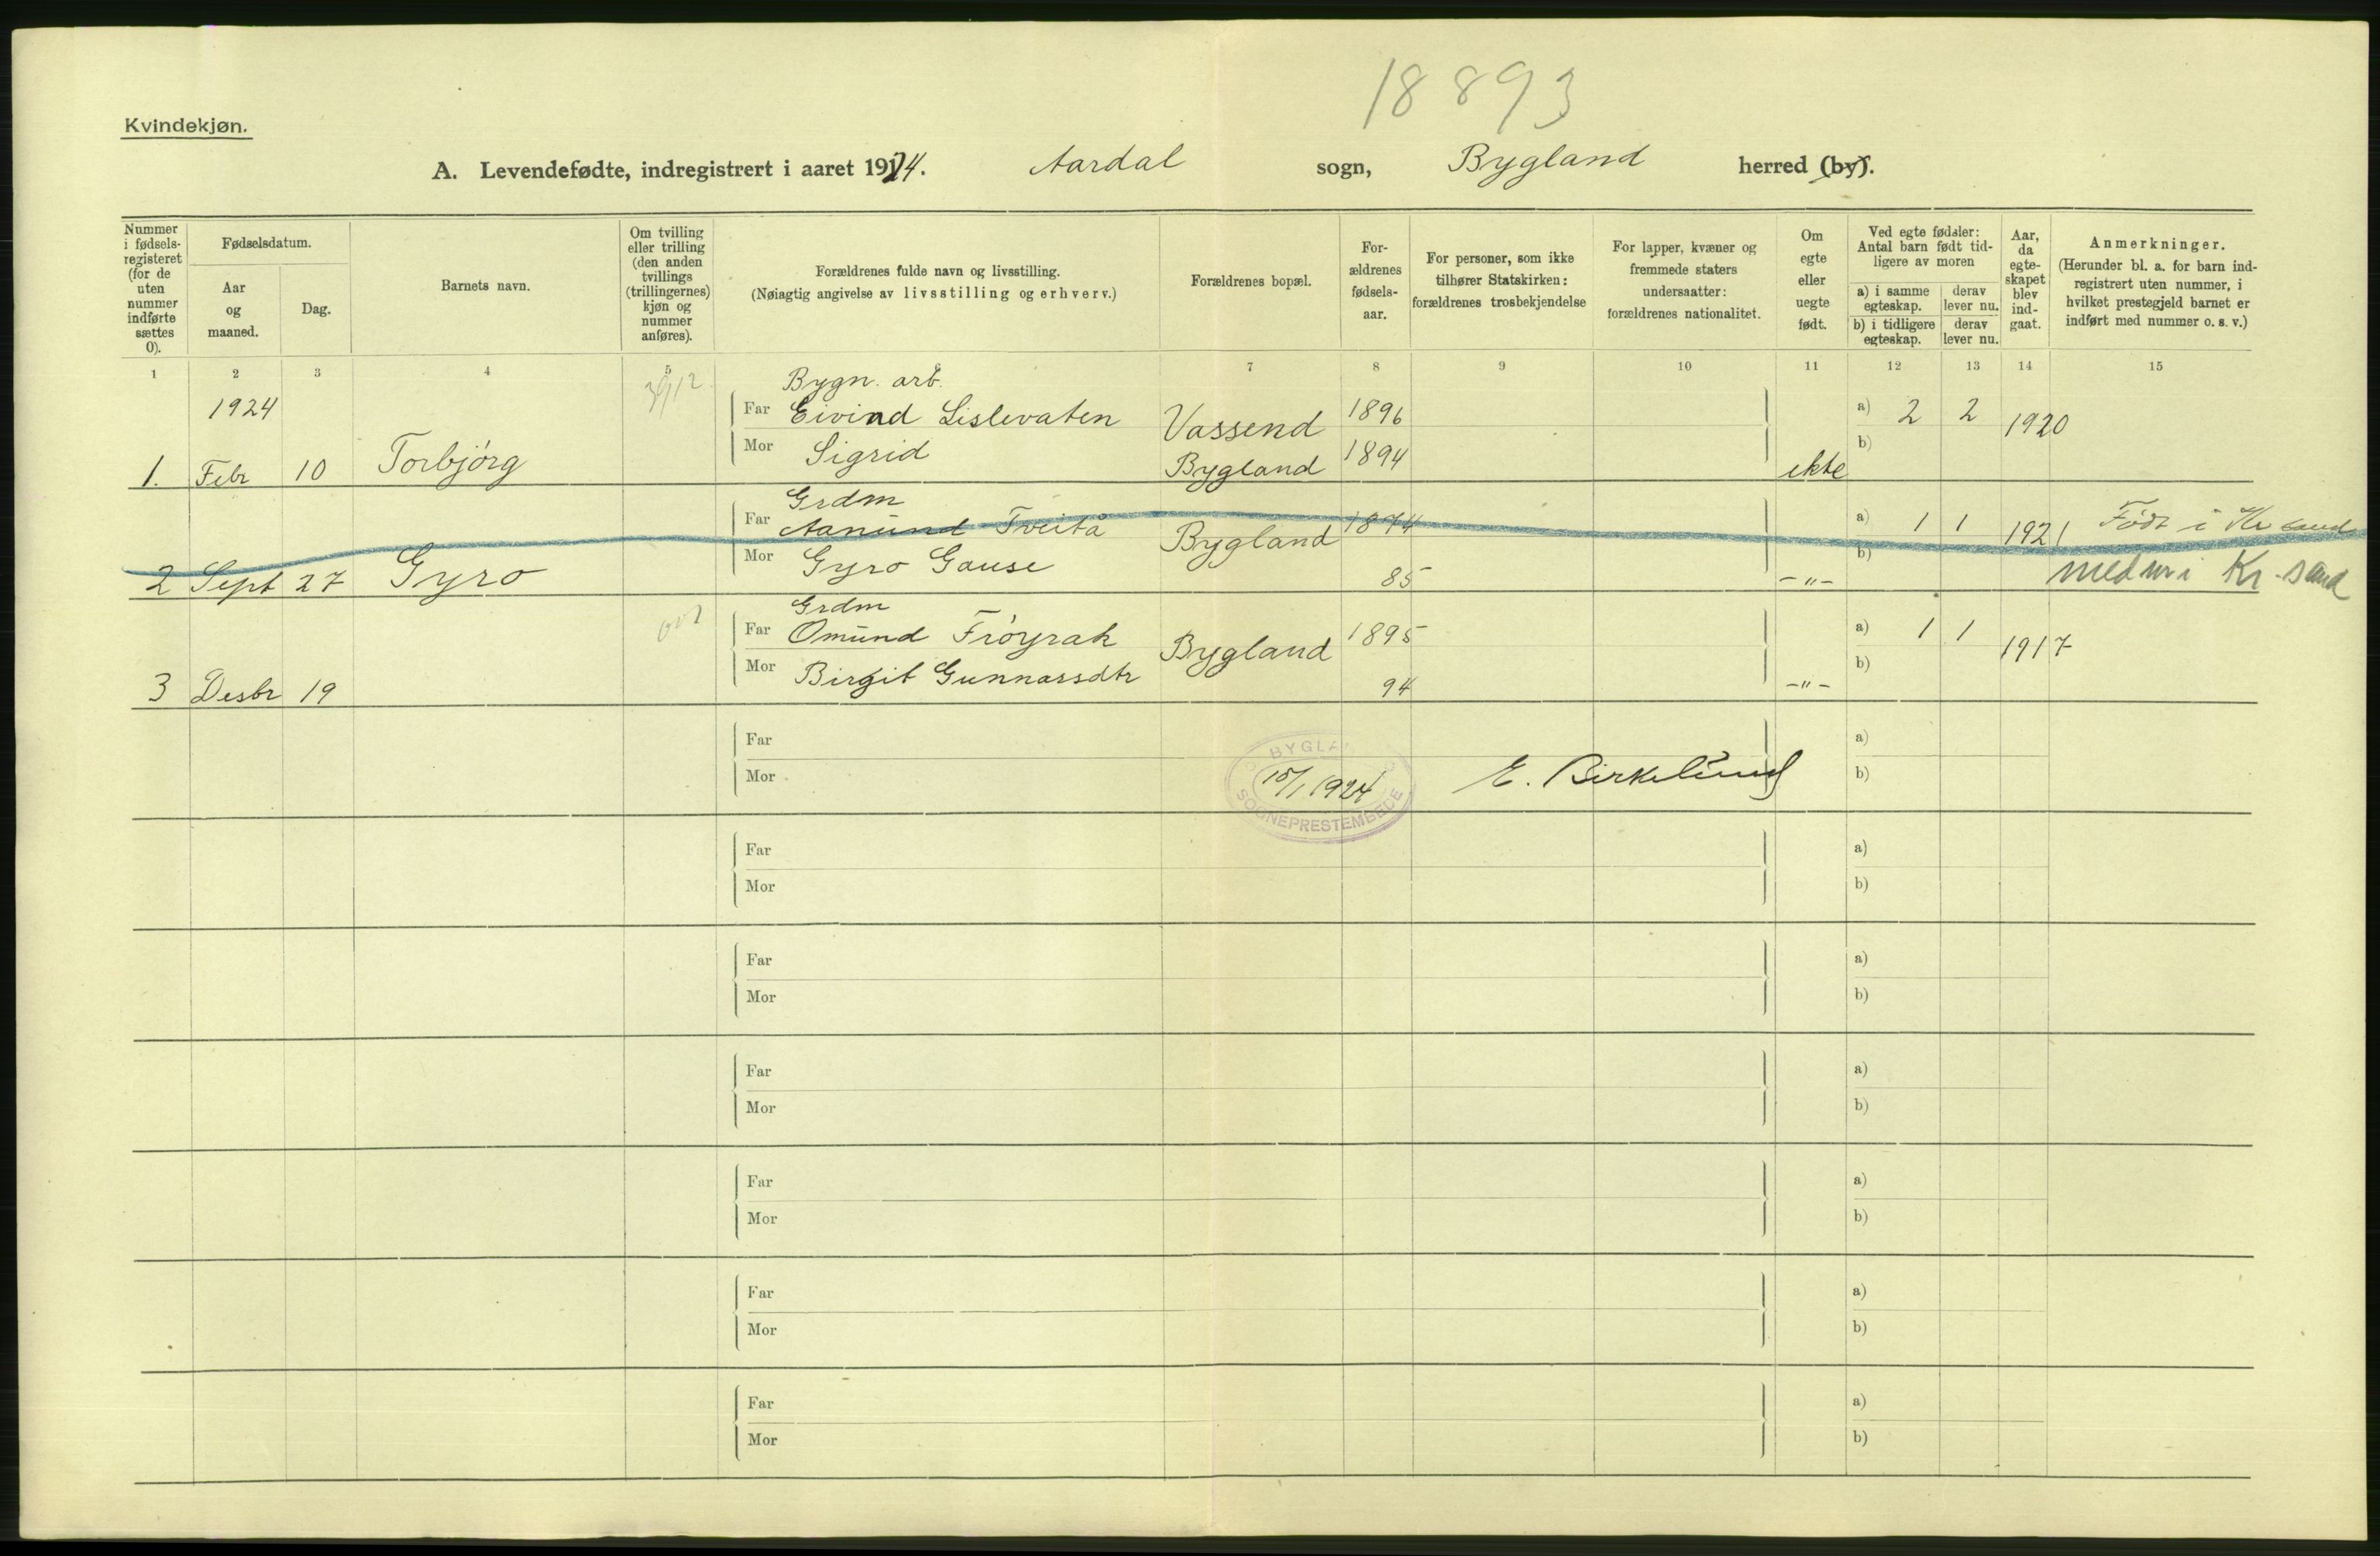 18893
Kvindekjøn.
A. Levendefødte, indregistrert i aaret 1924. Aardal sogn, Bygland herred (by).
Nummer i fødsels-registeret (for de uten nummer indførte sættes 0).
Fødselsdatum.
Aar og maaned.
Dag.
Barnets navn.
Om tvilling eller trilling (den anden tvillings (trillingernes) kjøn og nummer anføres).
Forældrenes fulde navn og livsstilling.
(Nøiagtig angivelse av livsstilling og erhverv.)
Forældrenes bopæl.
For-ældrenes fødsels-aar.
For personer, som ikke tilhører Statskirken: forældrenes trosbekjendelse
For lapper, kvæner og fremmede staters undersaatter: forældrenes nationalitet.
Om egte eller uegte født.
Ved egte fødsler: Antal barn født tid-ligere av moren
a) i samme egteskap. derav lever nu.
b) i tidligere egteskap. derav lever nu.
Aar, da egte-skapet blev ind-gaat.
Anmerkninger.
(Herunder bl. a. for barn ind-registrert uten nummer, i hvilket prestegjeld barnet er indført med nummer o. s. v.)
1 2 3 4 5 7 8 9 10 11 12 13 14 15
Bygn. arb.
1924 Far Eivind Lislevaten 1896 a) 2 2 1920
Vassend
Mor Sigrid 1894 b)
1. Febr 10 Torbjörg Bygland ekte
Grdm
Far Aanund Tveitå Bygland 1874 a) 1 1 1921 Födt i Kr sand
Mor Gyro Gause 85 b)
2 Sept 27 Gyro -"- med nr i Kr.sand
Grdm
Far Omund Fröyrak Bygland 1895 a) 1 1 1917
Mor Birgit Gunnarsdtr 94 b)
3 Desbr 19 -"-
Far a)
Mor b)
BYGLA
15/1 1924
SOGNEPRESTEMBEDE
E. Birkelund
Far a)
Mor b)
Far a)
Mor b)
Far a)
Mor b)
Far a)
Mor b)
Far a)
Mor b)
Far a)
Mor b)